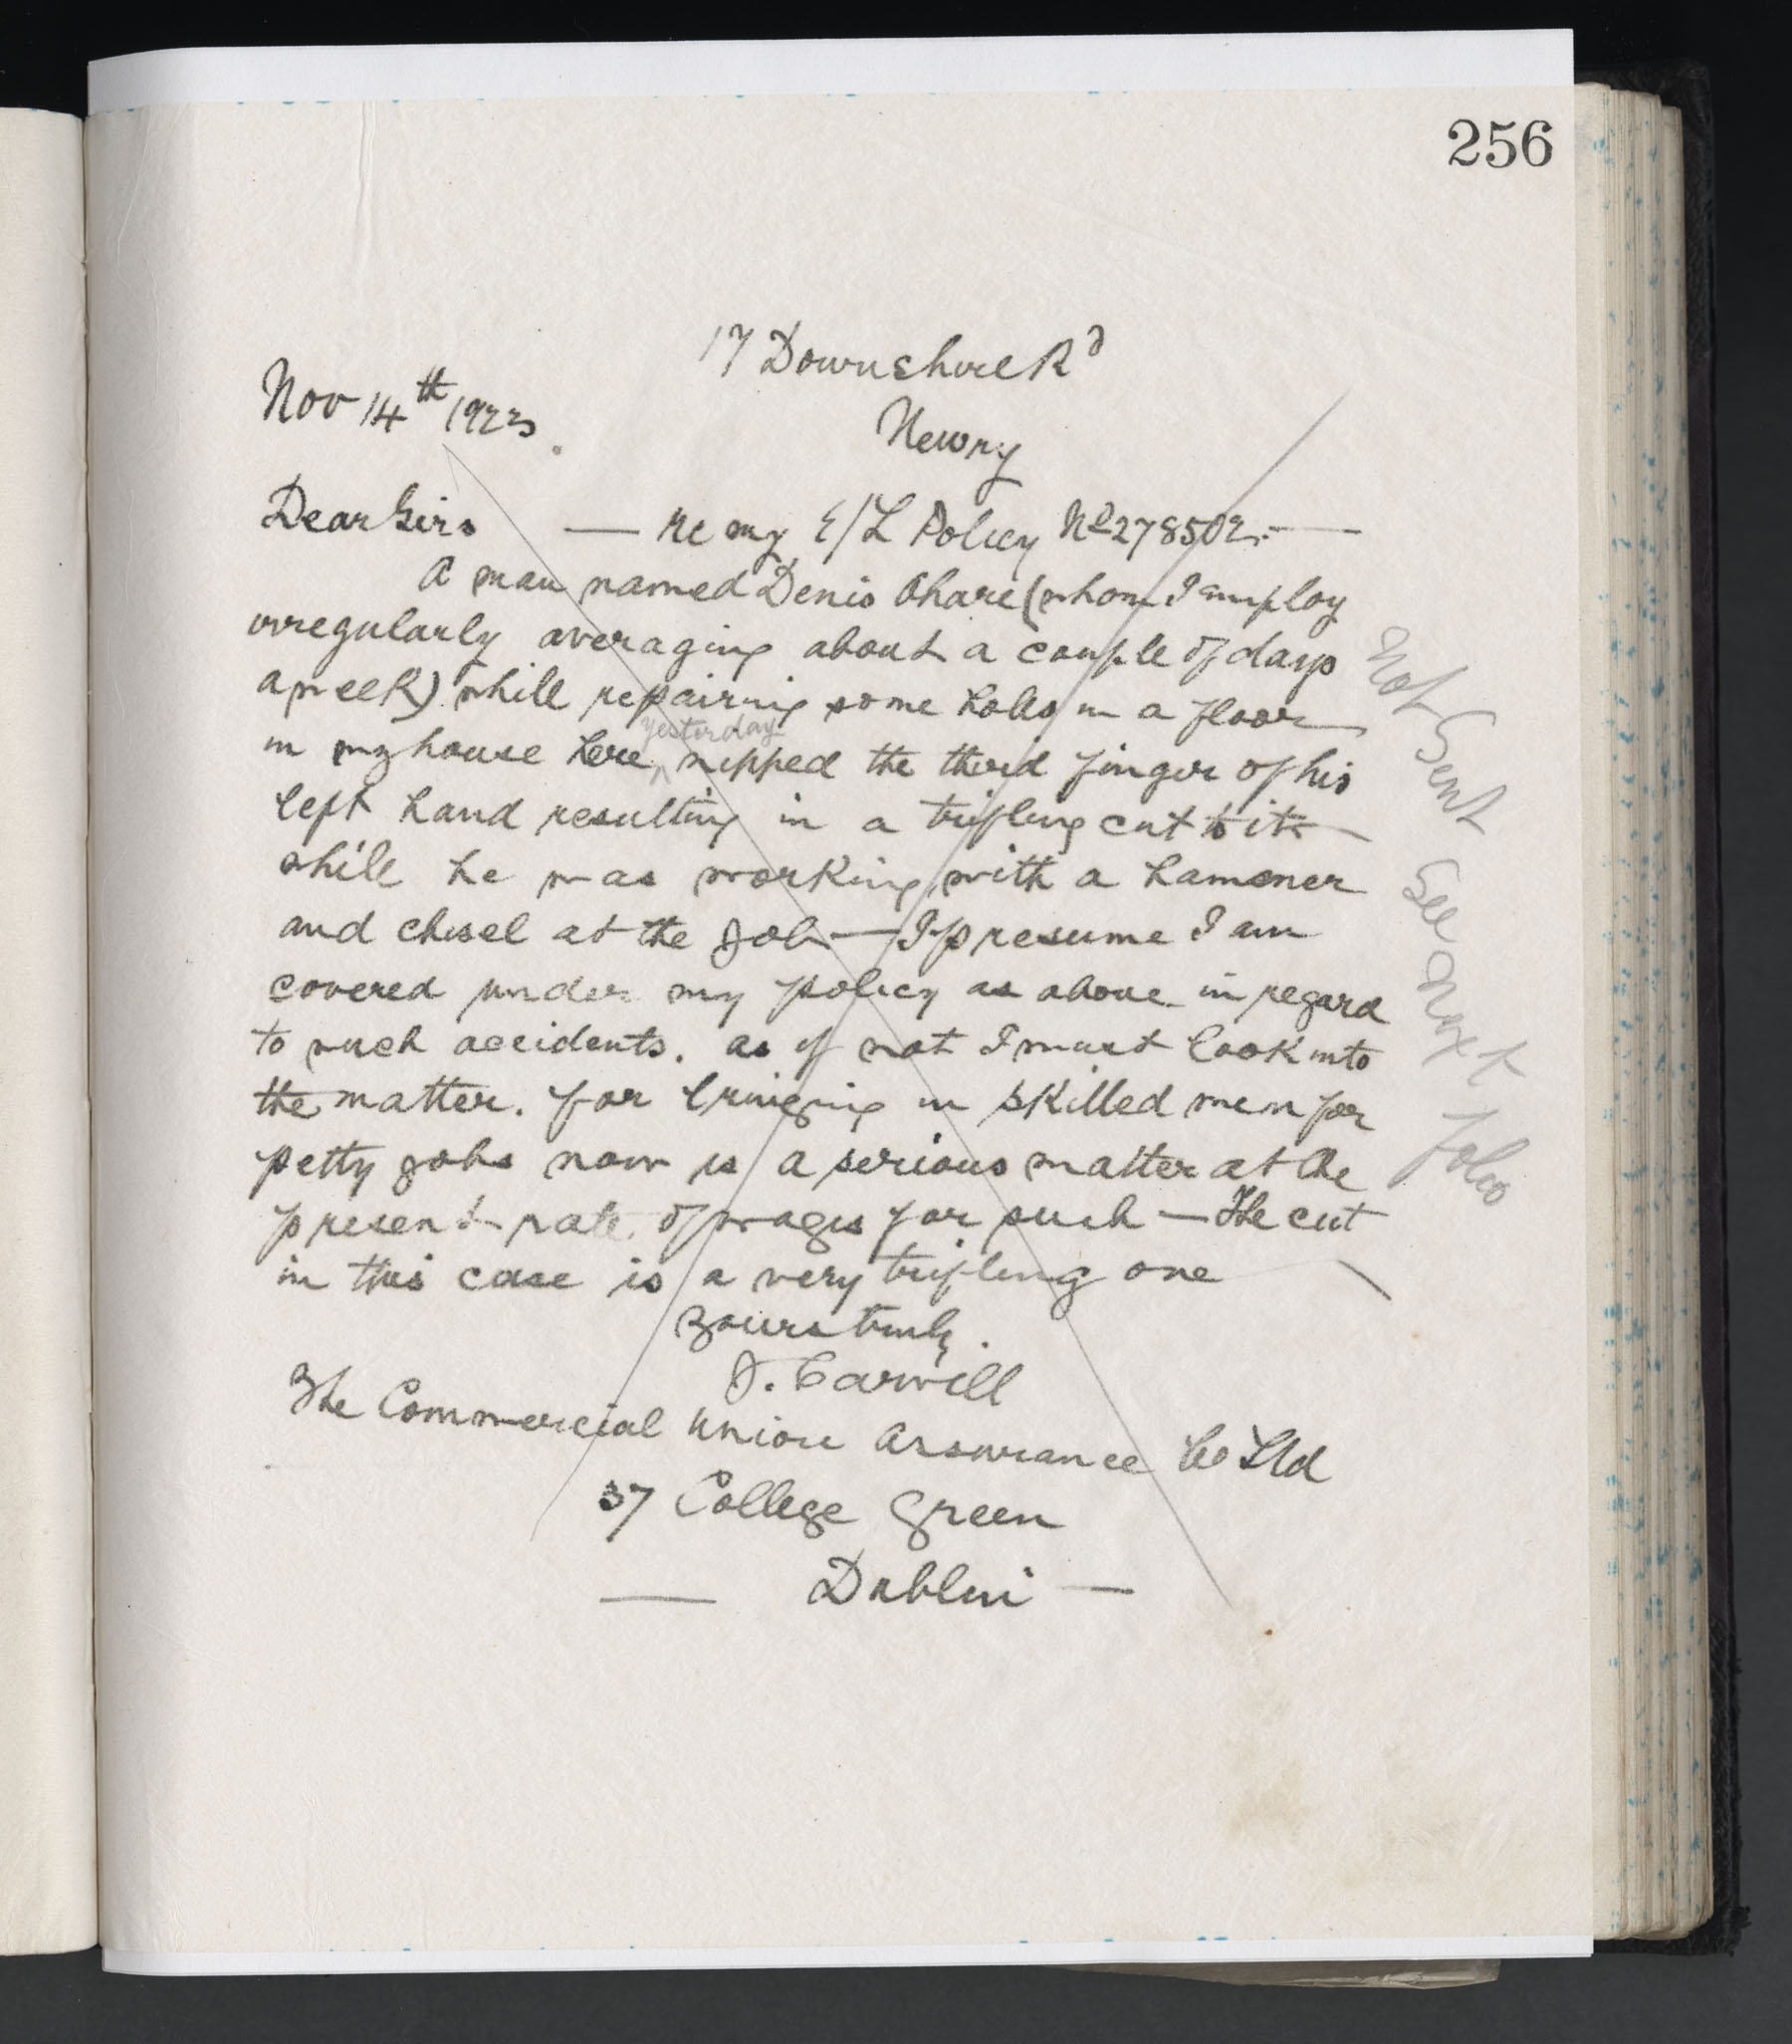 256
17 Downshire Rd
Nov 14th 1923.
Newry
Dear Sirs — Re my E/L Policy No 278502. —
A man named Denis Ohare (whom I employ
irregularly averaging about a couple of days
a week) while repairing some holes in a floor
yesterday
in my house here ^ nipped the third finger of his
left hand resulting in a trifling cut to it —
while he was working with a hammer
and chisel at the job — I presume I am
covered under my policy as above in regard
to such accidents. as if not I must look into
the matter. for bringing in skilled men for
petty jobs now is a serious matter at the
present rate of wages for such — The cut
in this case is a very trifling one
yours truly.
J. Carvill
The Commercial Union Assurance Co Ltd
37 College Green
— Dublin —
Not Sent See Next folio